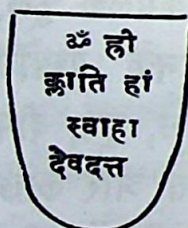 ॐ ह्री
क्लाति हां
स्वाहा
देवदत्त